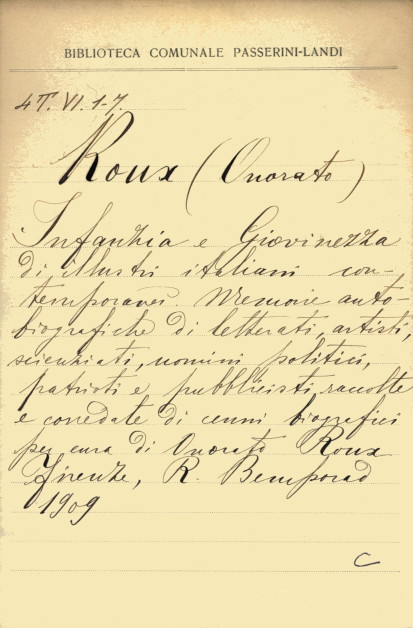 BIBLIOTECA COMUNALE PASSERINI-LANDI
4T. VI. 1-7.
Roux (Onorato)
Infanzia e Giovinezza
di illustri italiani con-
temporanei. Memorie auto-
biografiche di letterati, artisti,
scienziati, uomini politici,
patrioti e pubblicisti, raccolte
e corredate di cenni biografici
per cura di Onorato Roux
Firenze, R. Bemporad
1909
C